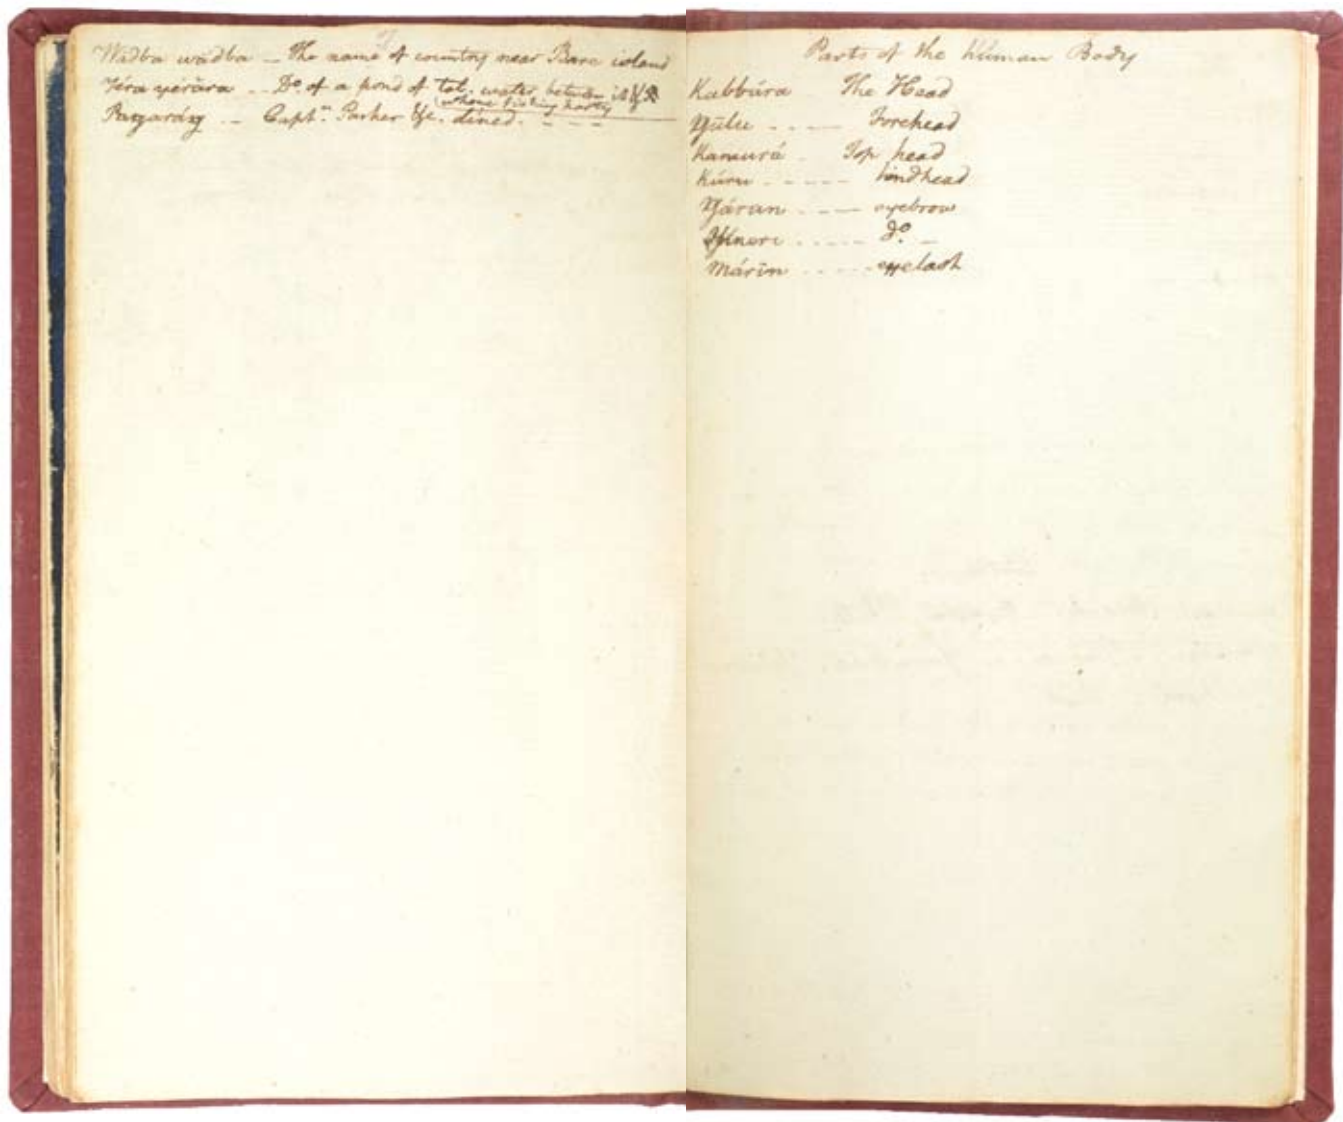 Wadba wadba — The name of country near Bare island
Yéra yérāra — Do. of a pond of tol. water between it &
where fishing party
— Captn. Parker &c. dined. — — —
Parts of the Human Body
Kabbára The Head
Ngūlu Forehead
Kamurá Top head
Kúru hindhead
Ngáran eyebrow
Do.
Márin eyelash